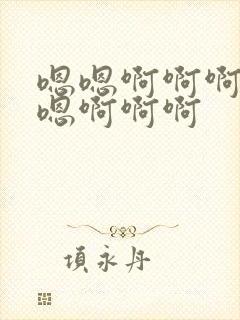 嗯嗯啊啊啊
嗯啊啊啊
項永丹